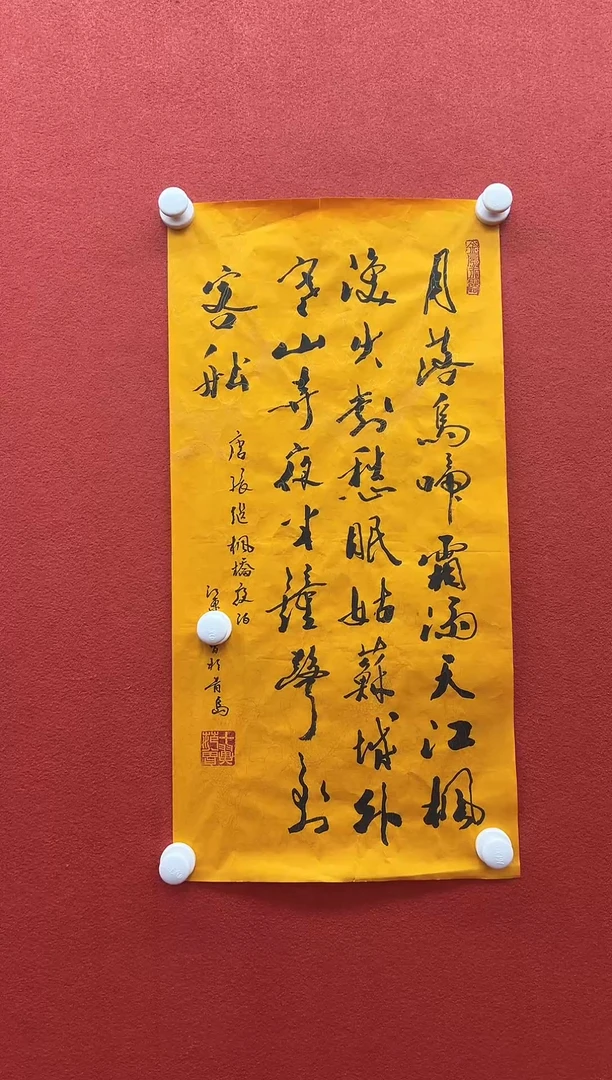 月落烏啼霜滿天江楓
漁火對愁眠姑蘇城外
寒山寺夜半鐘聲到
客船
唐張繼楓橋夜泊
於青島